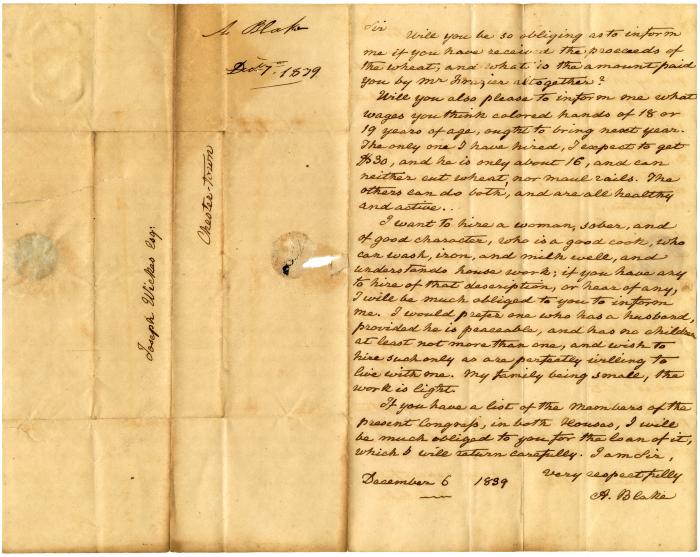 A Blake
Decr. 7th 1839
Chester-town
Joseph Wickes Esq:
Sir
Will you be so obliging as to inform
me if you have received the proceeds of
the wheat, and what is the amount paid
you by Mr Frazier altogether?
Will you also please to inform me what
wages you think colored hands of 18 or
19 years of age, ought to bring next year.
The only one I have hired, I expect to get
$30, and he is only about 16, and can
neither cut wheat, nor maul rails. The
others can do both, and are all healthy
and active..
I want to hire a woman, sober, and
of good character, who is a good cook, who
can wash, iron, and milk well, and
understands house work; if you have any
to hire of that description, or hear of any,
I will be much obliged to you to inform
me. I would prefer one who has a husband,
provided he is peaceable, and has no children
at least not more than one, and wish to
hire such only as are perfectly willing to
live with me. My family being small, the
work is light.
If you have a list of the Members of the
present Congress, in both Houses, I will
be much obliged to you for the loan of it,
which I will return carefully. I am Sir,
very respectfully
December 6 1839
A. Blake